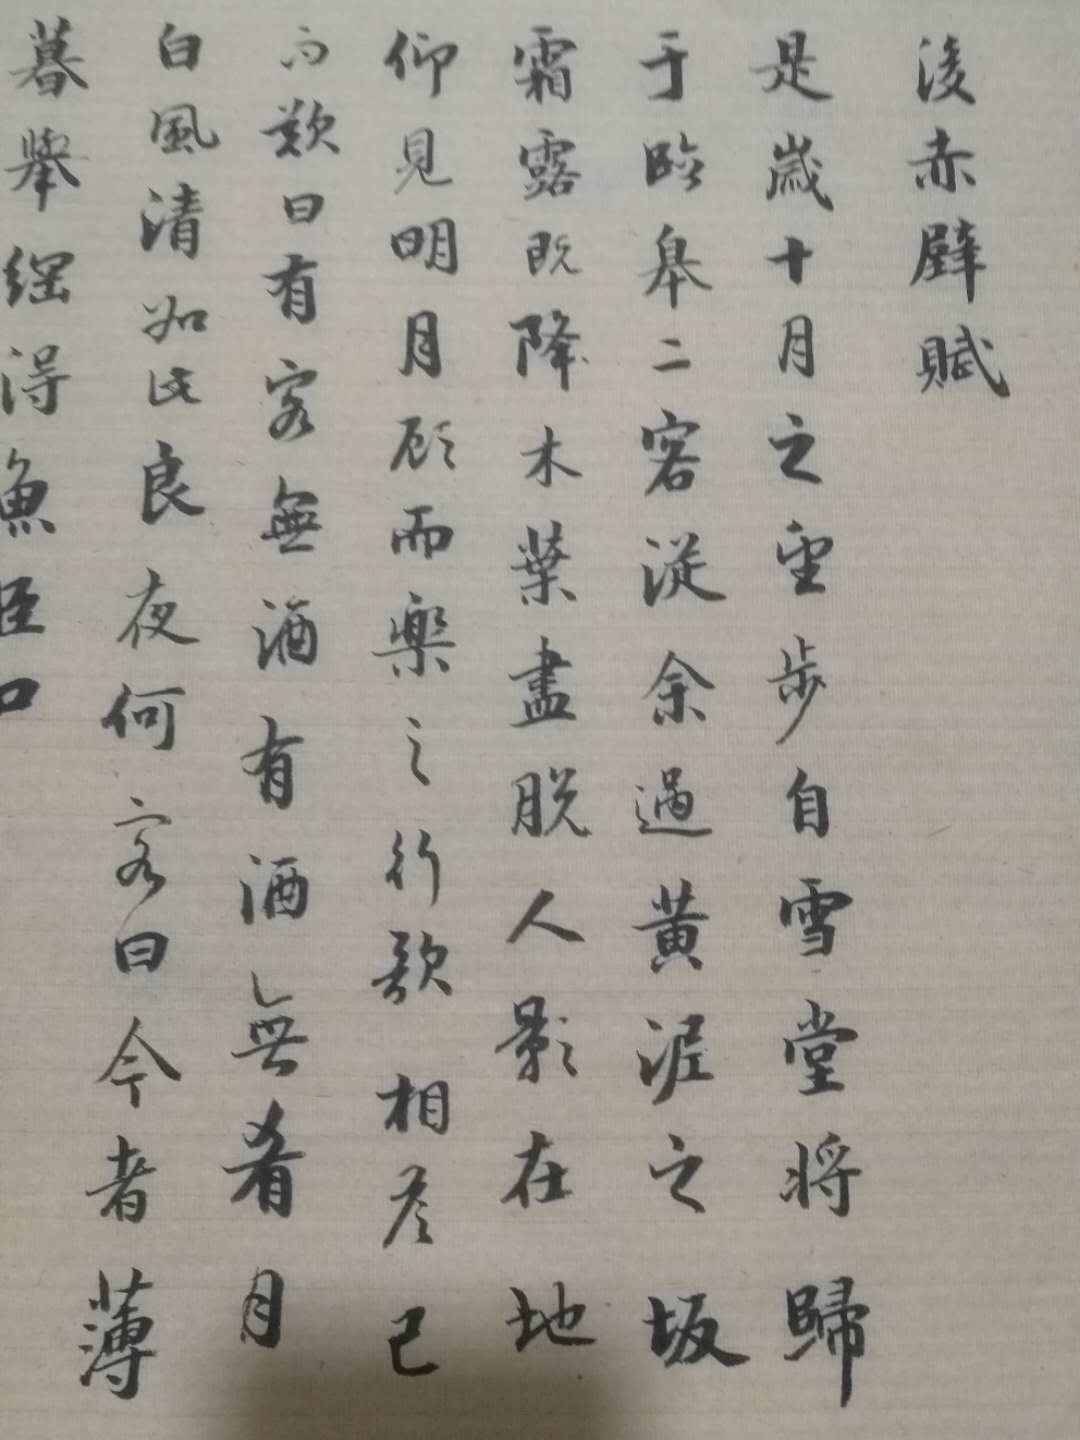 後赤壁賦
是歲十月之望步自雪堂將歸
于臨皋二客從余過黃泥之坂
霜露既降木葉盡脫人影在地
仰見明月顧而樂之行歌相答已
而歎曰有客無酒有酒無肴月
白風清如此良夜何客曰今者薄
暮舉網得魚巨口